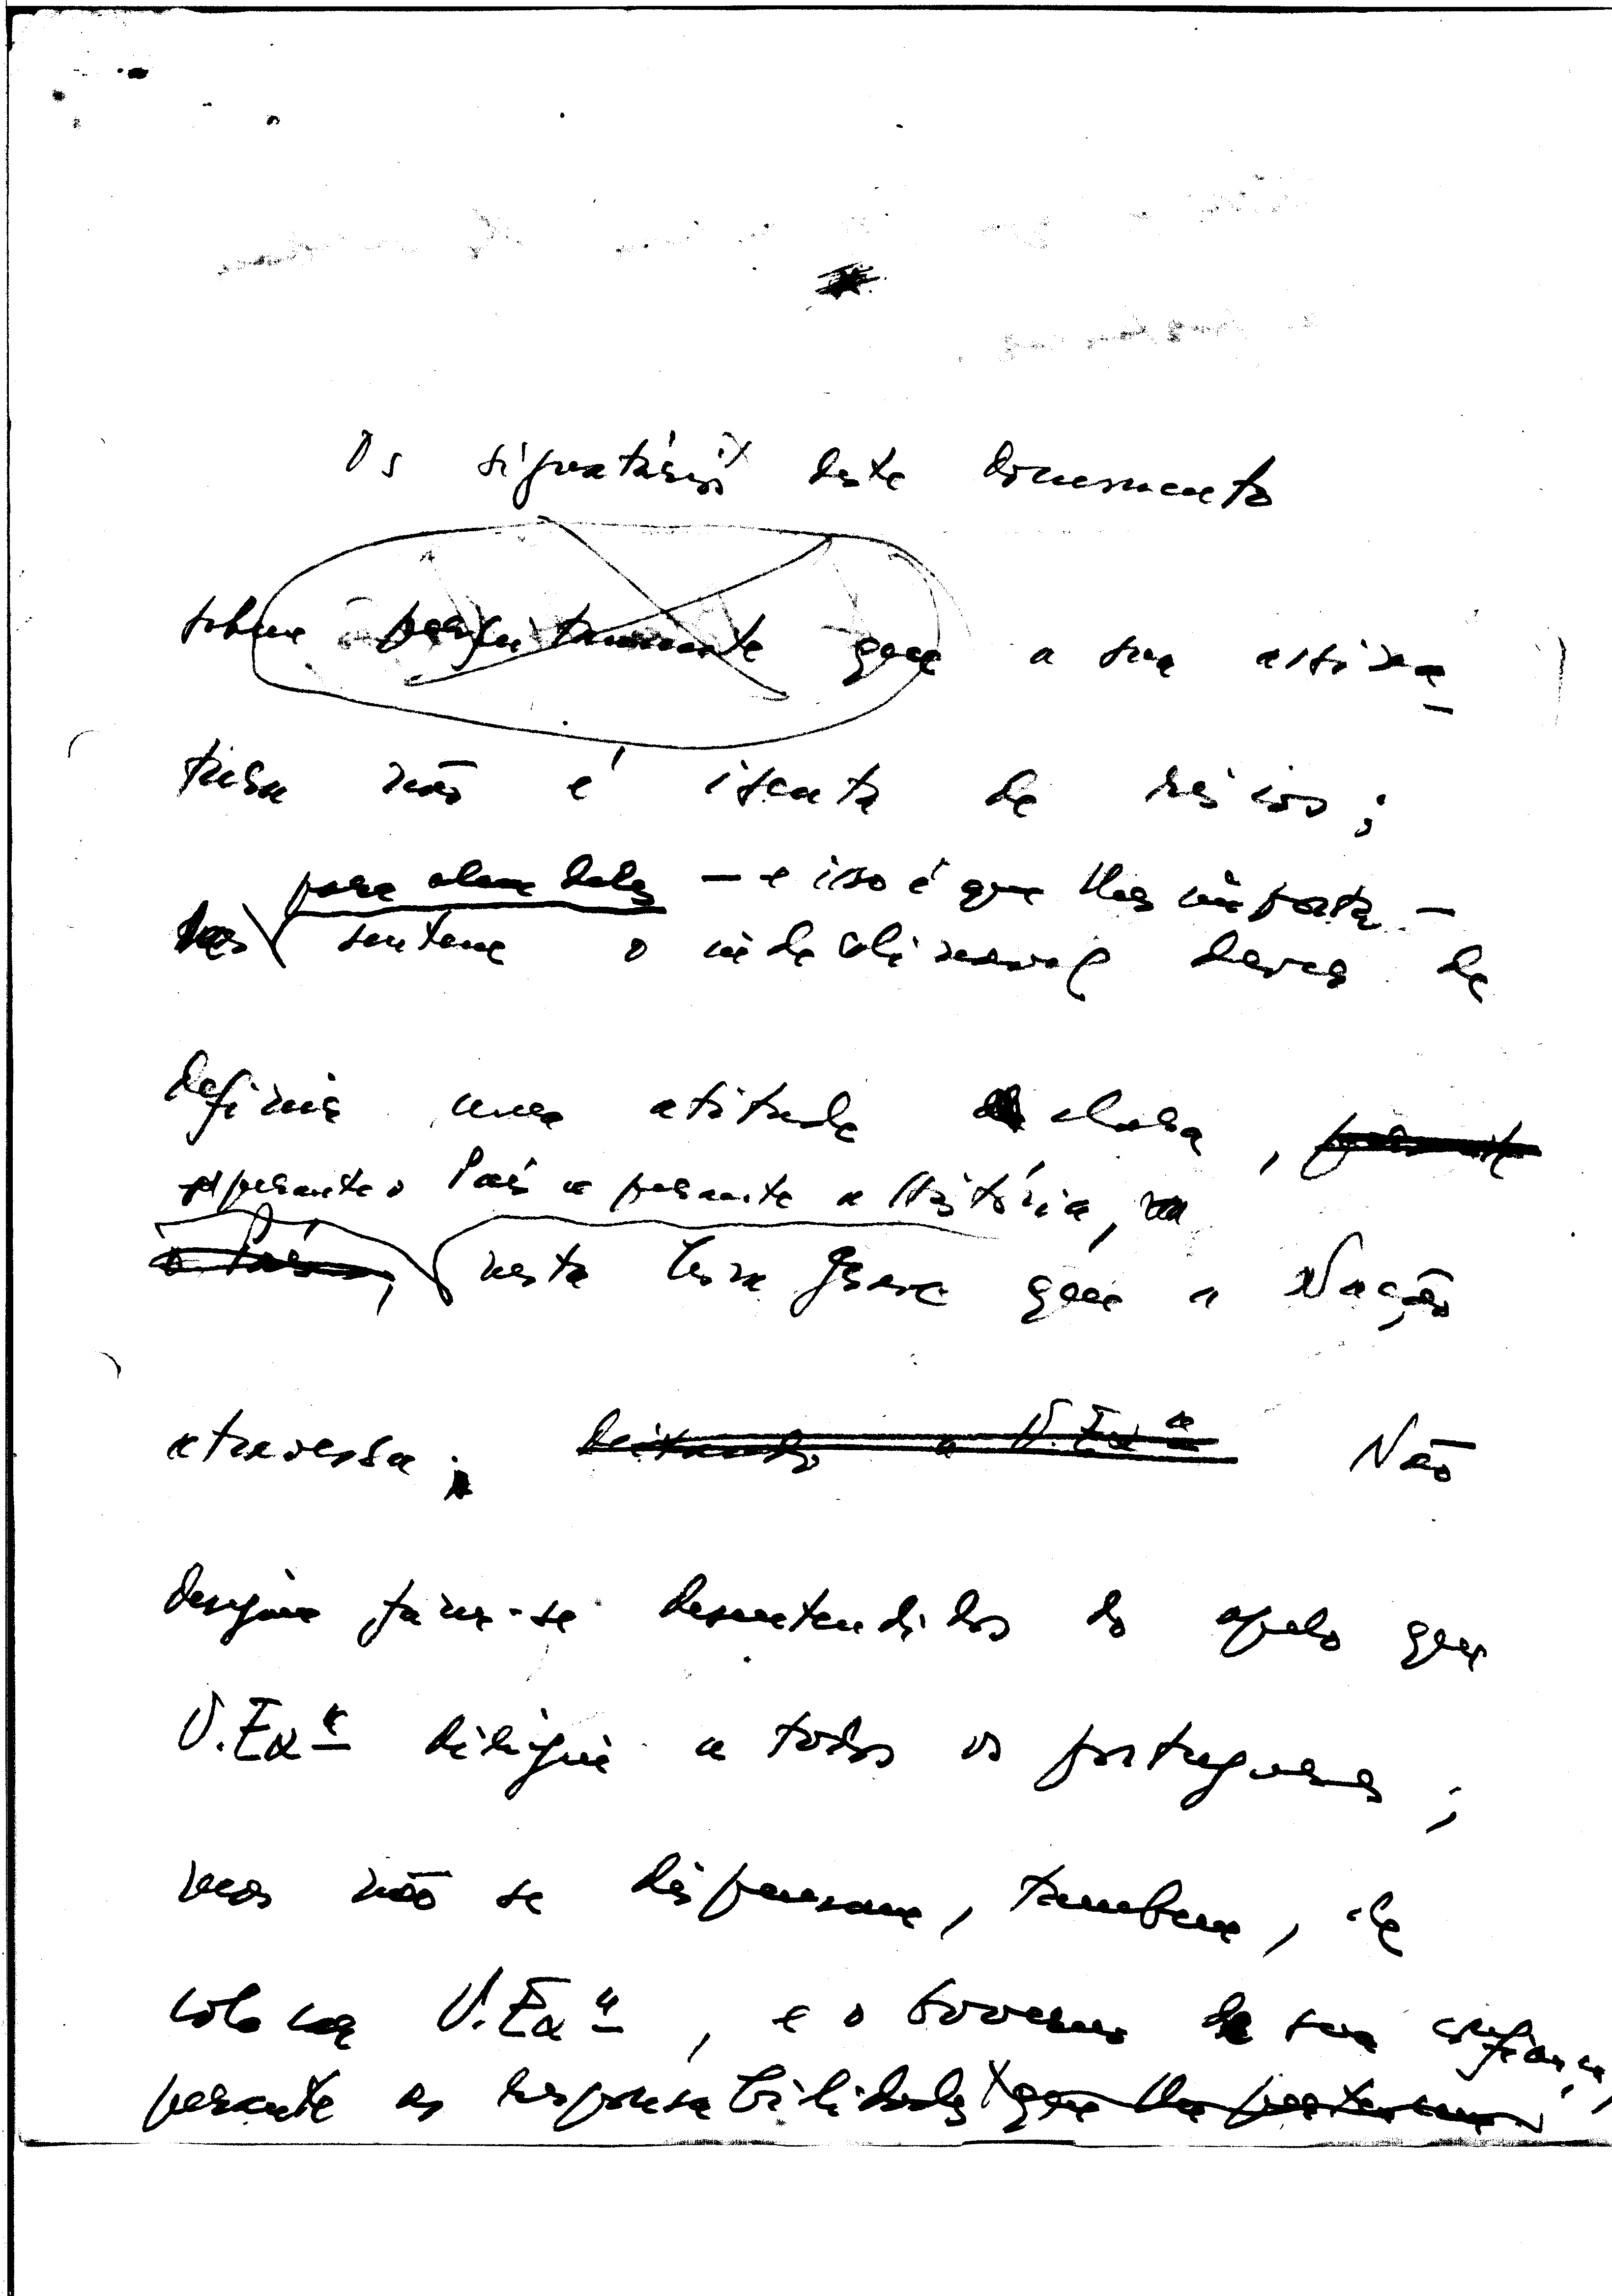 Os signatários deste documento
sabem perfeitamente que a sua assina-
tura não é isenta de riscos;
para além deles — e isso é que lhes importa —
mas sentem o indeclinável dever de
definir uma atitude clara, perante
perante o País e perante a História,
o País, nesta hora grave que a Nação
atravessa; deitando a V. Exª Não
desejam fazer-se desentendidos do apelo que
V. Exª dirigiu a todos os portugueses;
mas não se dispensam, também, de
colocar V. Exª, e o Governo de sua confiança,
perante as responsabilidades que lhes pertencem